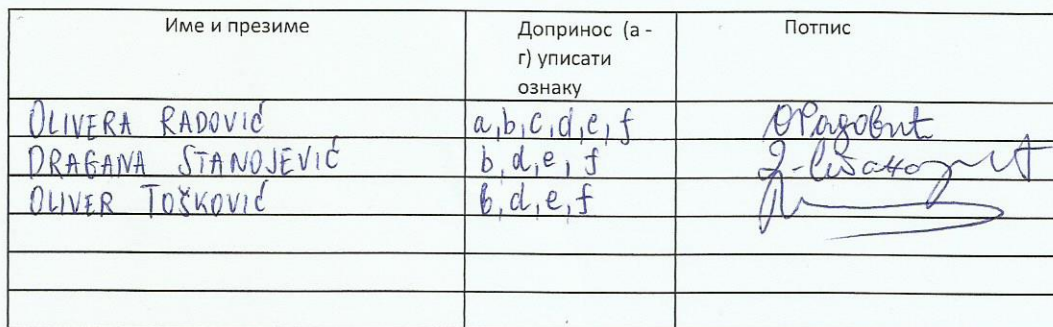 Име и презиме Допринос (а - Потпис
г) уписати
ознаку
OLIVERA RADOVIĆ a,b,c,d,e,f ОРадовић
DRAGANA STANOJEVIĆ b,d,e,f
OLIVER TOŠKOVIĆ b,d,e,f